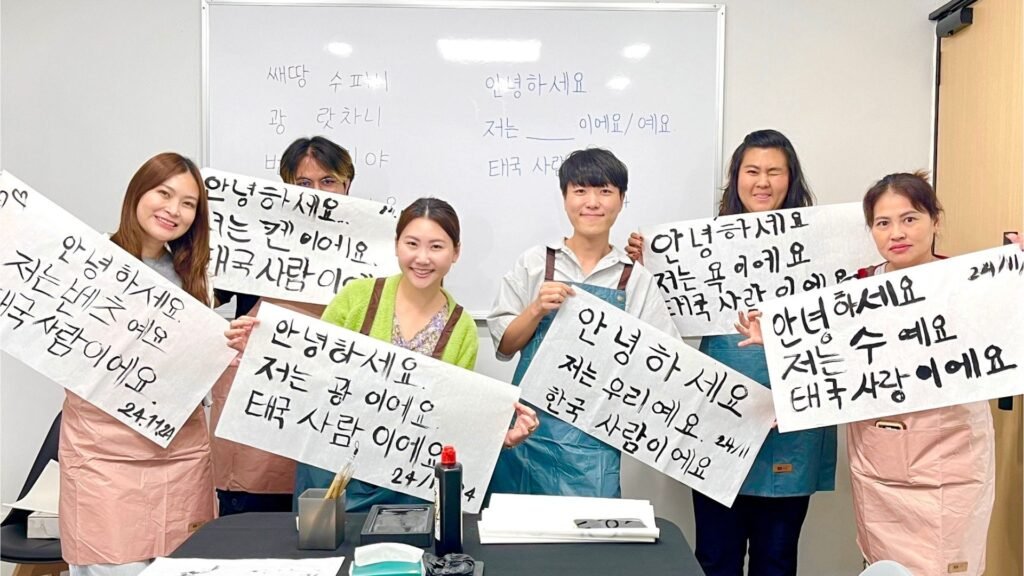 쌔땅
광 랏차니
안녕하세요
저는 ____ 이에요/예요.
태국 사람
안녕하세요.
저는 베츠 예요
태국사람이에요.
24.11.24
안녕하세요..
저는 켄 이에요.
태국사람 이에
안녕하세요.
저는 광 이에요.
태국 사람 이에요
24/11
안녕하세요
저는 우리 예요.
한국 사람이 에요
24/11
안녕하세요
저는 욕 이에요
태국 사람 이에요
24/11/
안녕하세요
저는 수 예요
태국사랑 이에요.